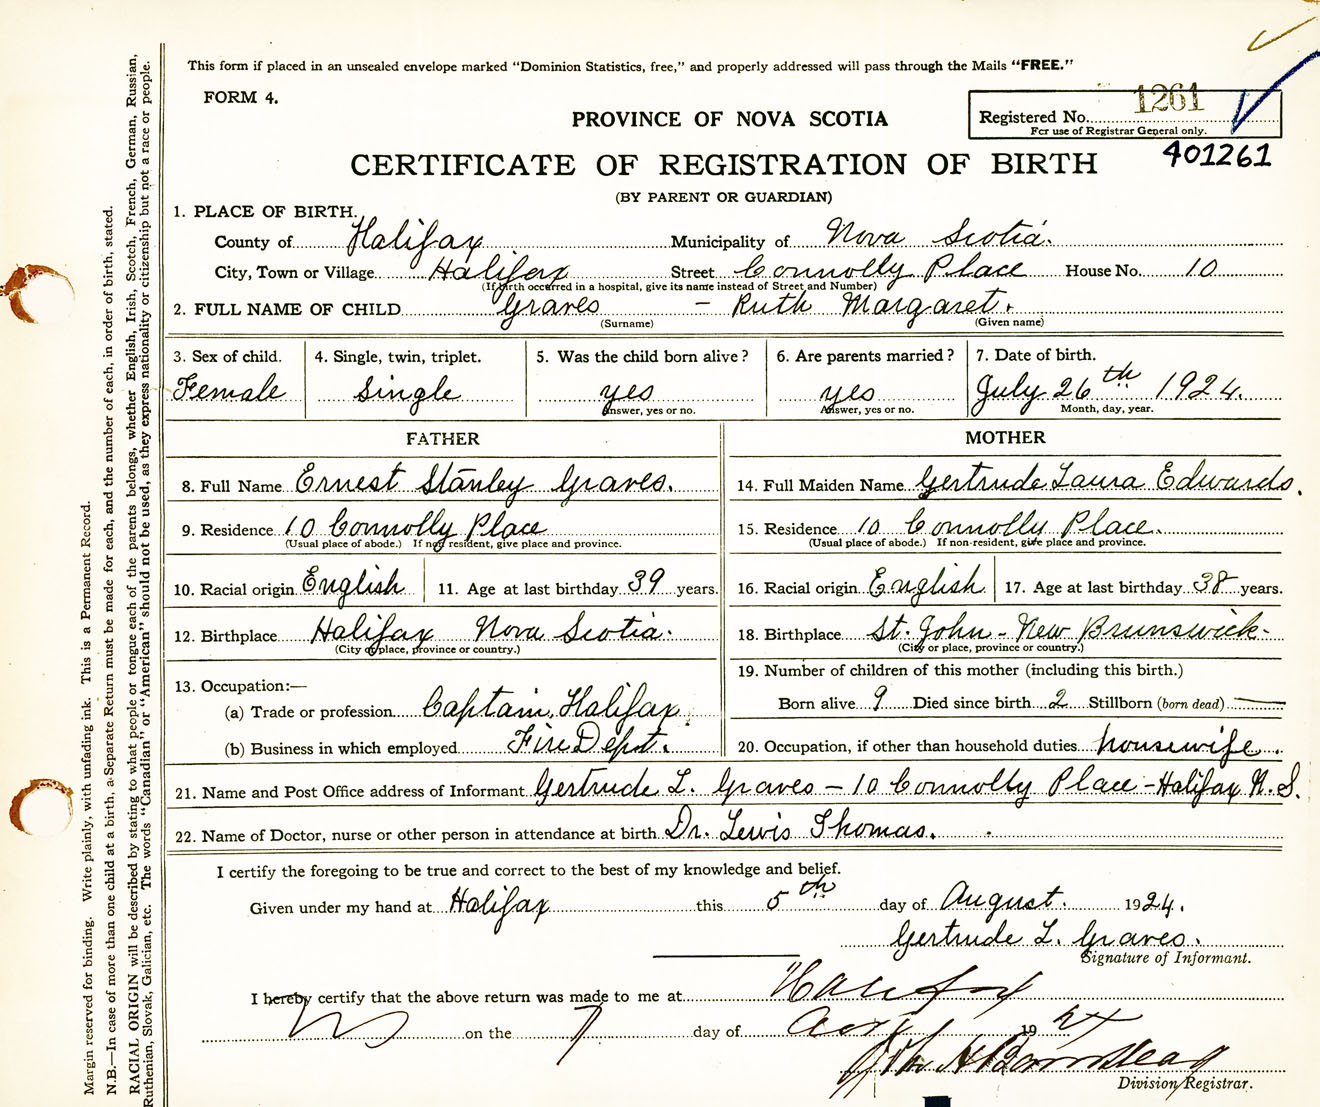 This form if placed in an unsealed envelope marked "Dominion Statistics, free," and properly addressed will pass through the Mails "FREE."
FORM 4.
PROVINCE OF NOVA SCOTIA
Registered No. 1261
For use of Registrar General only.
401261
CERTIFICATE OF REGISTRATION OF BIRTH
(BY PARENT OR GUARDIAN)
1. PLACE OF BIRTH.
County of Halifax Municipality of Nova Scotia.
City, Town or Village Halifax Street Connolly Place House No. 10
(If birth occurred in a hospital, give its name instead of Street and Number)
2. FULL NAME OF CHILD Graves - Ruth Margaret.
(Surname) (Given name)
3. Sex of child. 4. Single, twin, triplet. 5. Was the child born alive? 6. Are parents married? 7. Date of birth.
Female Single yes yes July 26th 1924.
Answer, yes or no. Answer, yes or no. Month, day, year.
FATHER MOTHER
8. Full Name Ernest Stanley Graves. 14. Full Maiden Name Gertrude Laura Edwards.
9. Residence 10 Connolly Place 15. Residence 10 Connolly Place.
(Usual place of abode.) If non resident, give place and province. (Usual place of abode.) If non-resident, give place and province.
10. Racial origin English 11. Age at last birthday 39 years. 16. Racial origin English 17. Age at last birthday 38 years.
12. Birthplace Halifax Nova Scotia. 18. Birthplace St. John - New Brunswick-
(City or place, province or country.) (City or place, province or country.)
19. Number of children of this mother (including this birth.)
13. Occupation:—
(a) Trade or profession Captain, Halifax Born alive 9 Died since birth 2 Stillborn (born dead) —
(b) Business in which employed Fire Dept. 20. Occupation, if other than household duties housewife.
21. Name and Post Office address of Informant Gertrude L. Graves - 10 Connolly Place - Halifax N.S.
22. Name of Doctor, nurse or other person in attendance at birth Dr. Lewis Thomas.
I certify the foregoing to be true and correct to the best of my knowledge and belief.
Given under my hand at Halifax this 5th day of August. 1924.
Gertrude L. Graves.
Signature of Informant.
I hereby certify that the above return was made to me at Halifax
NS on the 7 day of Aug 1924
Division Registrar.
Margin reserved for binding. Write plainly, with unfading ink. This is a Permanent Record.
N.B.—In case of more than one child at a birth, a Separate Return must be made for each, and the number of each, in order of birth, stated.
RACIAL ORIGIN will be described by stating to what people or tongue each of the parents belongs, whether English, Irish, Scotch, French, German, Russian,
Ruthenian, Slovak, Galician, etc. The words "Canadian" or "American" should not be used, as they express nationality or citizenship but not a race or people.